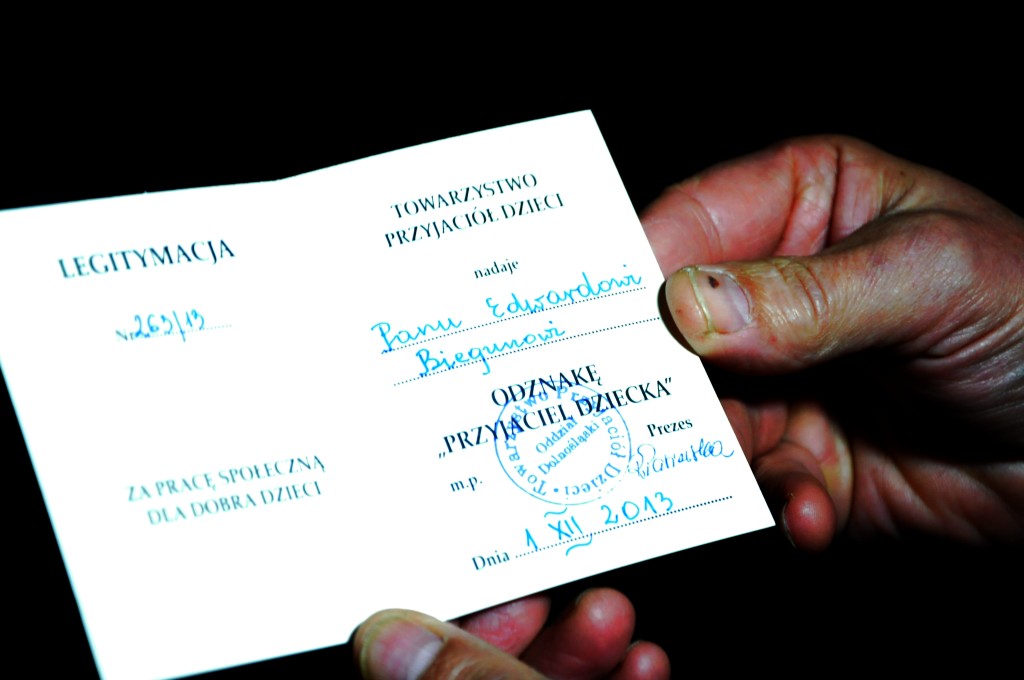 LEGITYMACJA
Nr 263/13
ZA PRACĘ SPOŁECZNĄ
DLA DOBRA DZIECI
TOWARZYSTWO
PRZYJACIÓŁ DZIECI
nadaje
Panu Edwardowi
Biegunowi
ODZNAKĘ
„PRZYJACIEL DZIECKA”
Towarzystwo Przyjaciół Dzieci
Oddział
Dolnośląski
Prezes
m.p.
Dnia 1 XII 2013